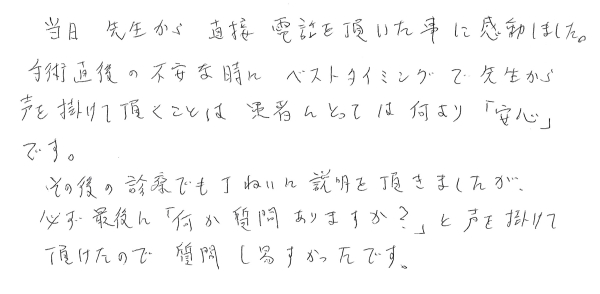 当日 先生から 直接 電話を頂いた事に感動しました。
手術直後の不安な時に ベストタイミングで先生から
声を掛けて頂くことは 患者にとっては何より「安心」
です。
その後の診察でも丁ねいに説明を頂きましたが、
必ず最後に「何か質問ありますか?」と声を掛けて
頂けたので 質問し易すかったです。